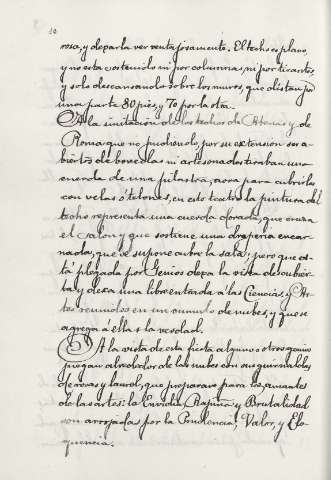 10
rosa, y dejarla ver ventajosamente. El techo es plano,
y no esta sostenido ni por columnas, ni por tirantes,
y solo descansando sobre los muros, que distan por
una parte 80 pies, y 70 por la otra.
A la imitación de los techos de Atenas y de
Roma que no pudiendo, por su extension ser a-
biertos de bovedas ni artesonados tiraban una
cuerda de una pilastra, a otra para cubrirlos
con velas o telones, en este teatro la puntura del
techo representa una cuerda dorada, que cruza
el Salon y que sostiene una draperia encar-
nada, que se supone cubre la sala; pero que es-
ta plegada por Genios deja la vista descubier-
ta y deja una libre entrada á las Ciencias, y Ar-
tes reunidos en un cumulo de nubes, y que se
agrega á ella la verdad.
A la vista de esta fiesta algunos otros genios
juegan alrededor de las nubes con sus guirnaldas
de rosas y laurel, que preparan para los amantes
de las artes: la Envidia, Rapiña y Brutalidad
son arrojadas por la Prudencia, Valor, y Elo-
quencia.